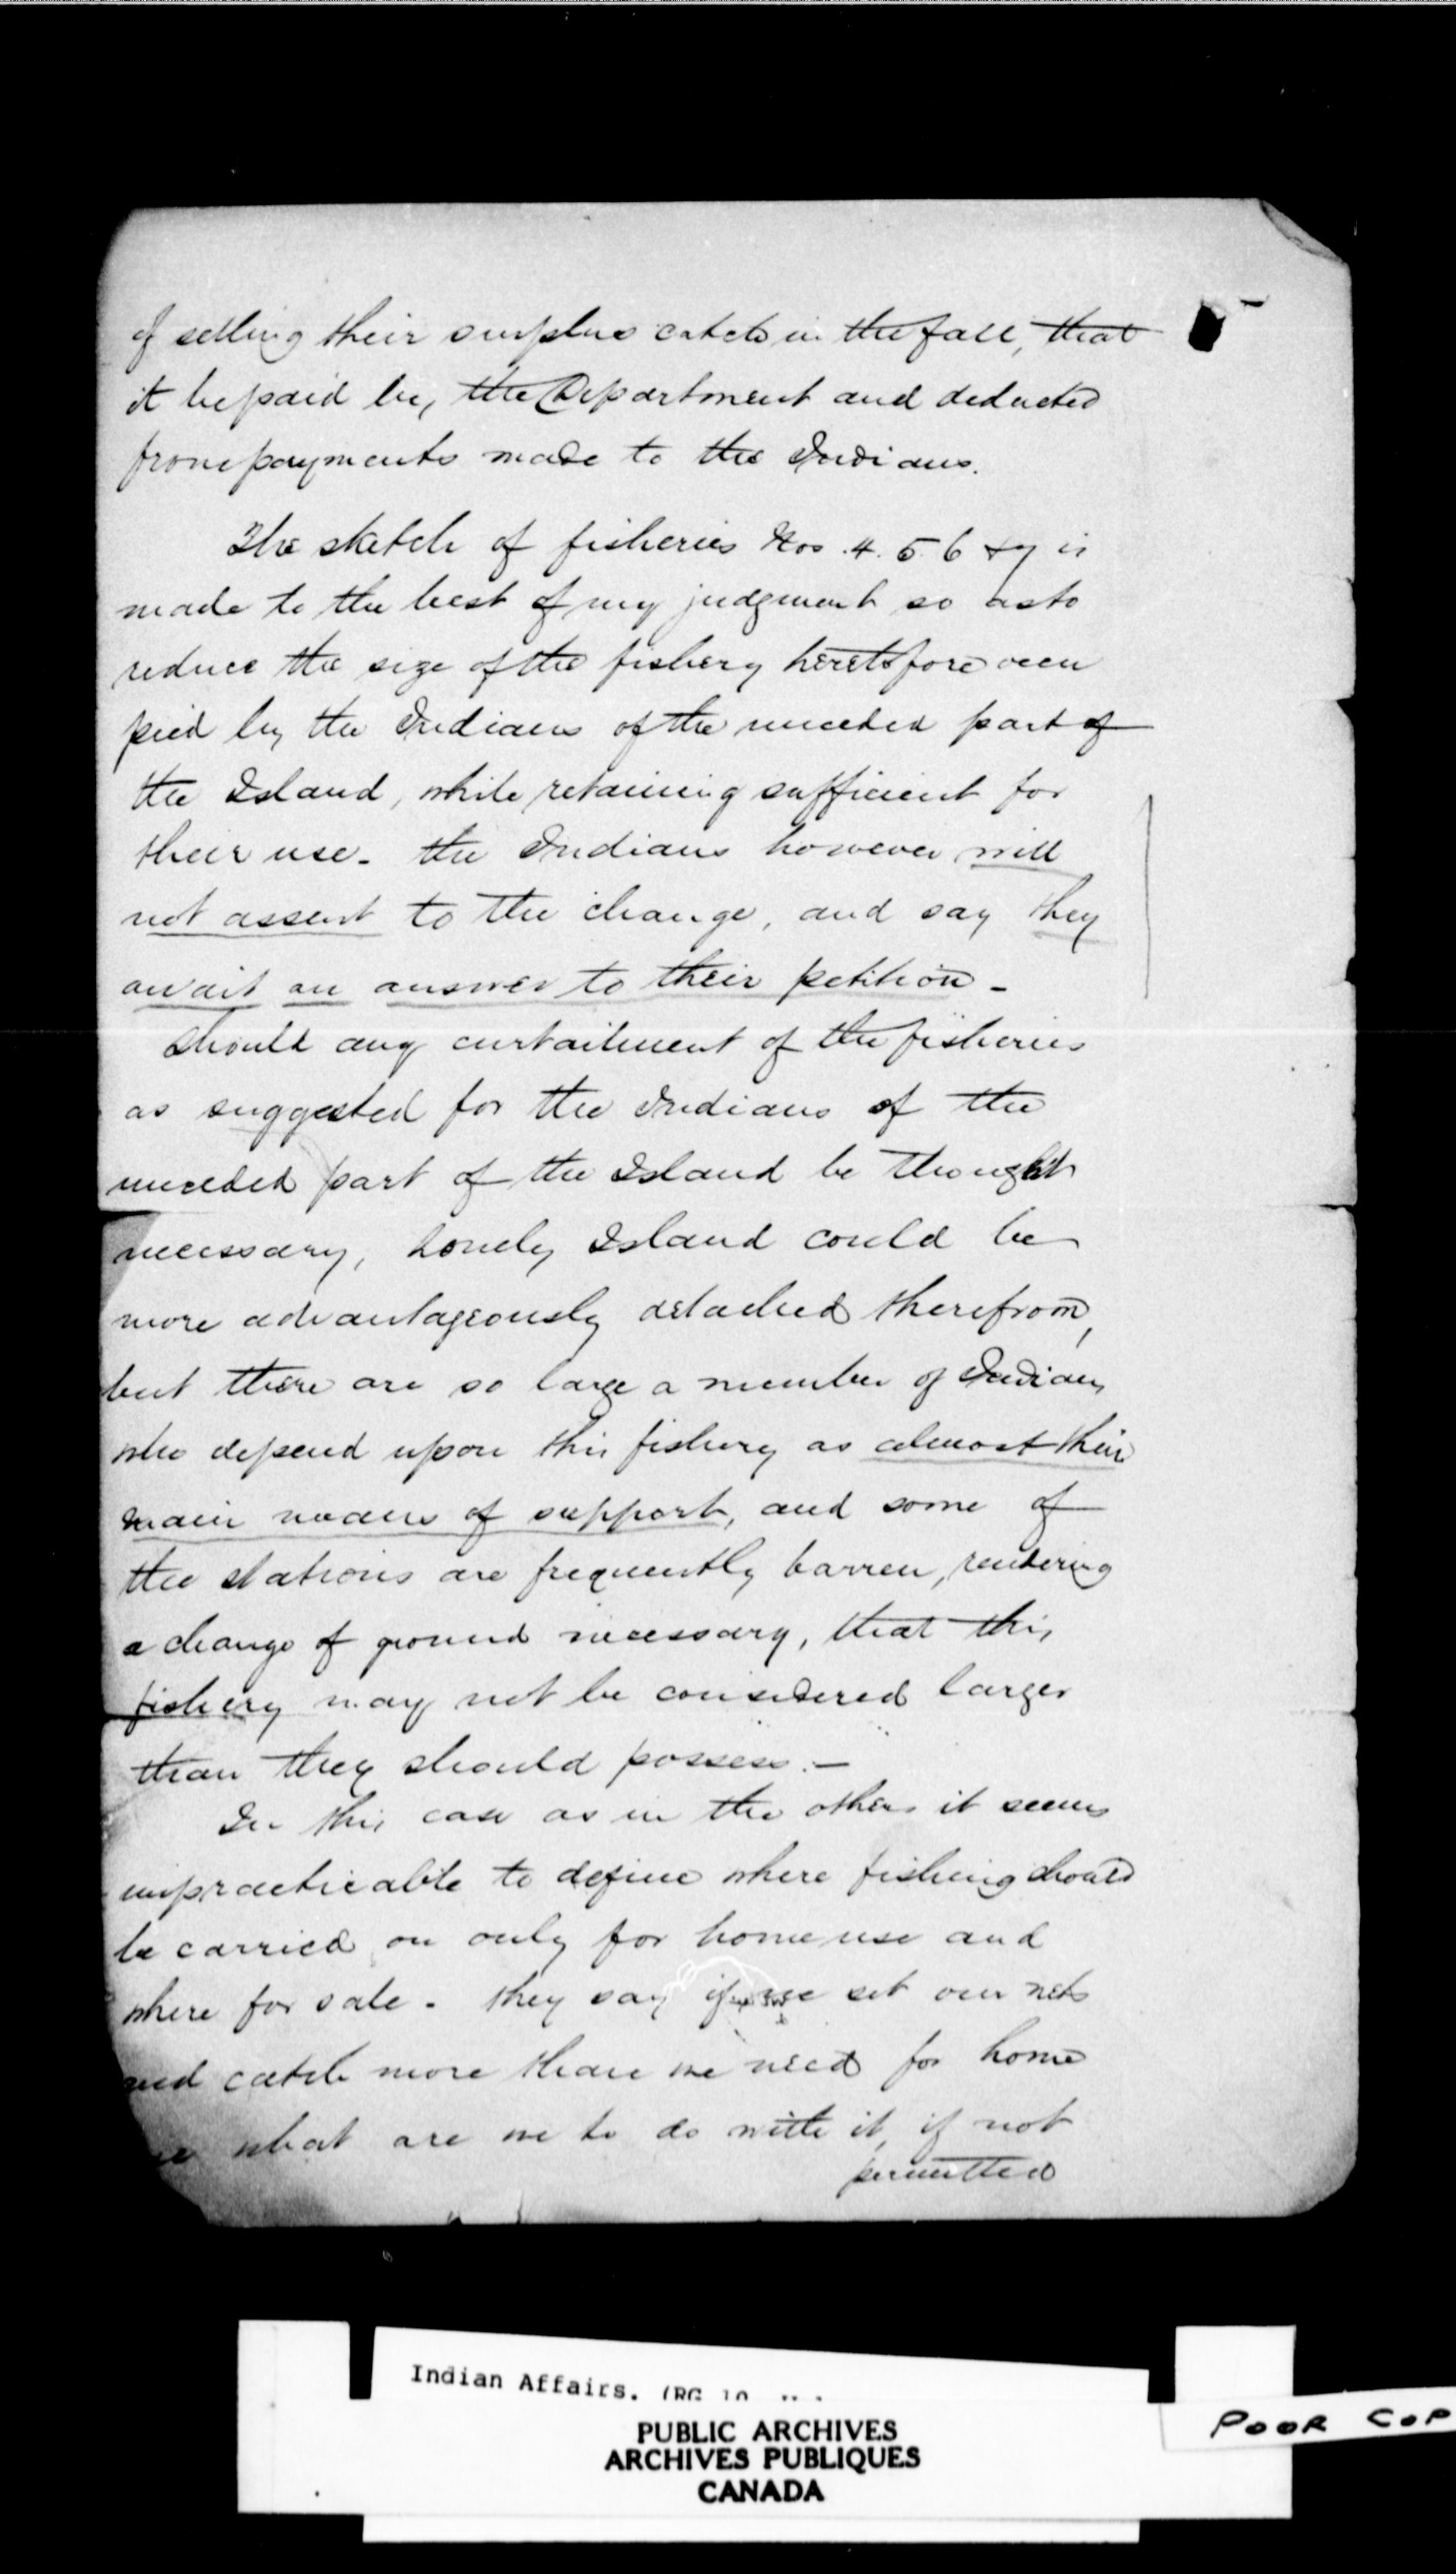 of selling their surplus catch in the fall, that
it be paid by, the Department and deducted
from payments made to the Indians.
The sketch of fisheries Nos. 4. 5. 6 & 7 is
made to the best of my judgment so as to
reduce the size of the fishery heretofore occu
pied by the Indians of the unceded part of
the Island, while retaining sufficient for
their use - the Indians however will
not assent to the change, and say they
await an answer to their petition -
Should any curtailment of the fisheries
as suggested for the Indians of the
unceded part of the Island be thought
necessary, Lonely Island could be
more advantageously detached therefrom,
but there are so large a number of Indians
who depend upon this fishery as almost their
main means of support, and some of
the stations are frequently barren, rendering
a change of ground necessary, that this
fishery may not be considered larger
than they should possess. -
In this case as in the others it seems
impracticable to define where fishing should
be carried on only for home use and
where for sale - they say if we set our nets
and catch more than we need for home
what are we to do with it, if not
permitted
Indian Affairs. (RG 10
PUBLIC ARCHIVES
ARCHIVES PUBLIQUES
CANADA
POOR COP